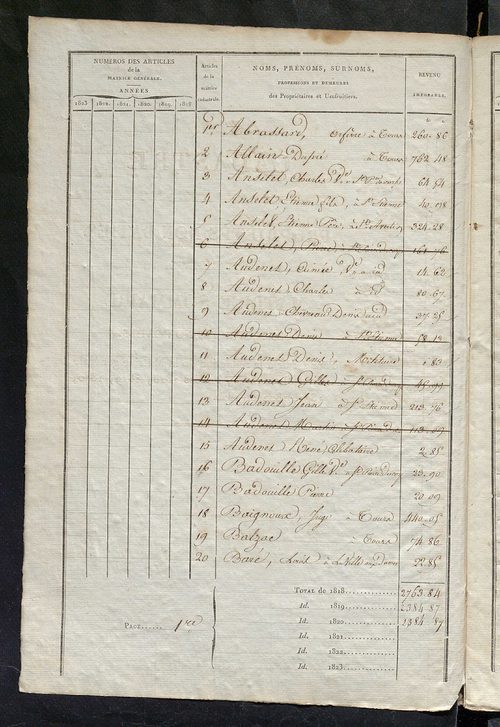 NUMÉROS DES ARTICLES
de la
MATRICE GÉNÉRALE.
ANNÉES
1823 1822. 1821. 1820. 1819. 1818
Articles
de la
matrice
NOMS, PRÉNOMS, SURNOMS,
PROFESSIONS ET DEMEURES
des Propriétaires et Usufruitiers.
REVENU
IMPOSABLE.
1er Abrassard, orfèvre à Tours 260. 86
2 Allain Dupré à Tours 762. 48
3 Anselet Charles Ve 64
4 Anselet Etienne fils, à St Etienne 40
5 Anselet, Etienne Père, à 324. 28
6 Anselet, Pierre
7 Audenet, Aimée Ve 14. 62
8 Audenet Charles à id 80. 67
9 Audenet Denis
10 Audenet Denis
11 Audenet Denis, 1 83
12 Audenet Gilles
13 Audenet Jean à St Etienne 213. 76
14 Audenet
15 Audenet René 2. 85
16 Badouille Gille Ve 90
17 Badouille Pierre 20 09
18 Baignoux, Juge à Tours 440. 05
19 Balzac à Tours 74 86
20 Baré, à la Ville aux Dames 22 85
TOTAL de 1818 2763. 84
Id. 1819 2384 87
Id. 1820 2384 87
Id. 1821
Id. 1822
Id. 1823
PAGE 1re